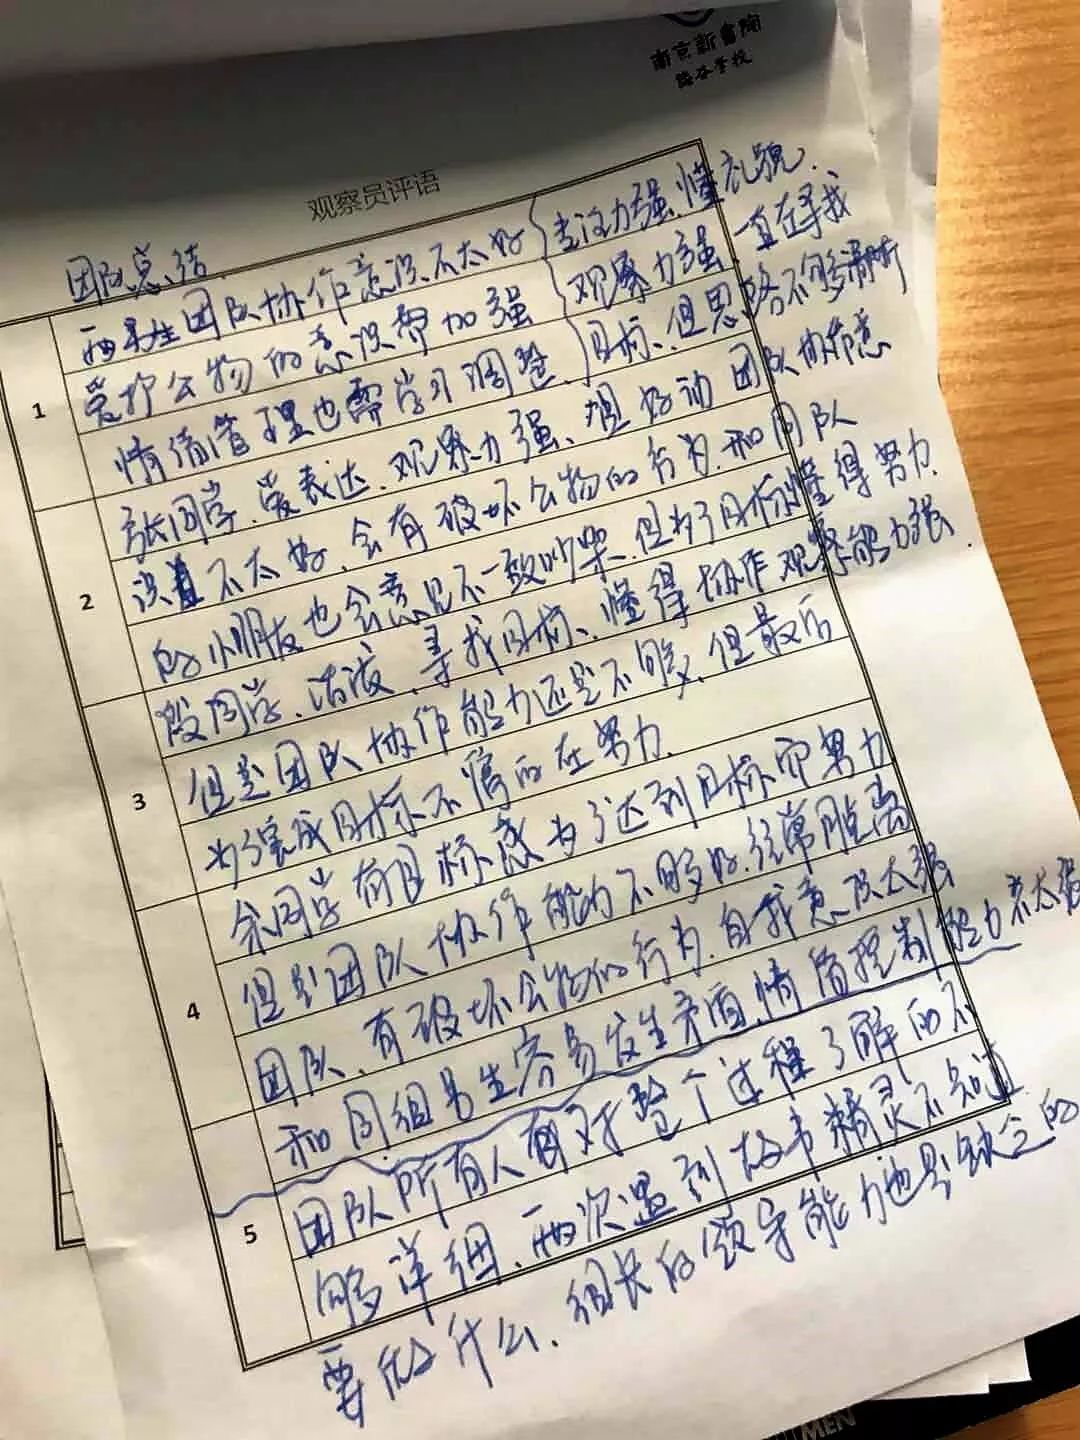 南京新书院
悠谷学校
观察员评语
团队总结
两男生团队协作意识不太好 专注力强、懂礼貌、
爱护公物的意识需加强 观察力强 一直在寻找
情绪管理也需学习调整、 目标、但思路不够清晰
1
张同学、爱表达、观察力强、但好动 团队协作意
识 不太好、会有破坏公物的行为、和同队
2
的小朋友也会意见不一致吵架、但为了目标懂得努力、
段同学、活泼、寻找目标、懂得协作 观察能力强、
但是团队协作能力还是不够、但最后
3
为了完成目标不停的在努力、
余同学有目标感为了达到目标而努力
但是团队协作能力不够好、经常脱离
4
团队、有破坏公物的行为、自我意识太强
和同组男生容易发生矛盾、情绪控制能力不太强
团队所有人 对整个过程了解的不
5
够详细、两次遇到故事精灵不知道
要做什么、组长的领导能力也是缺乏的
MEN